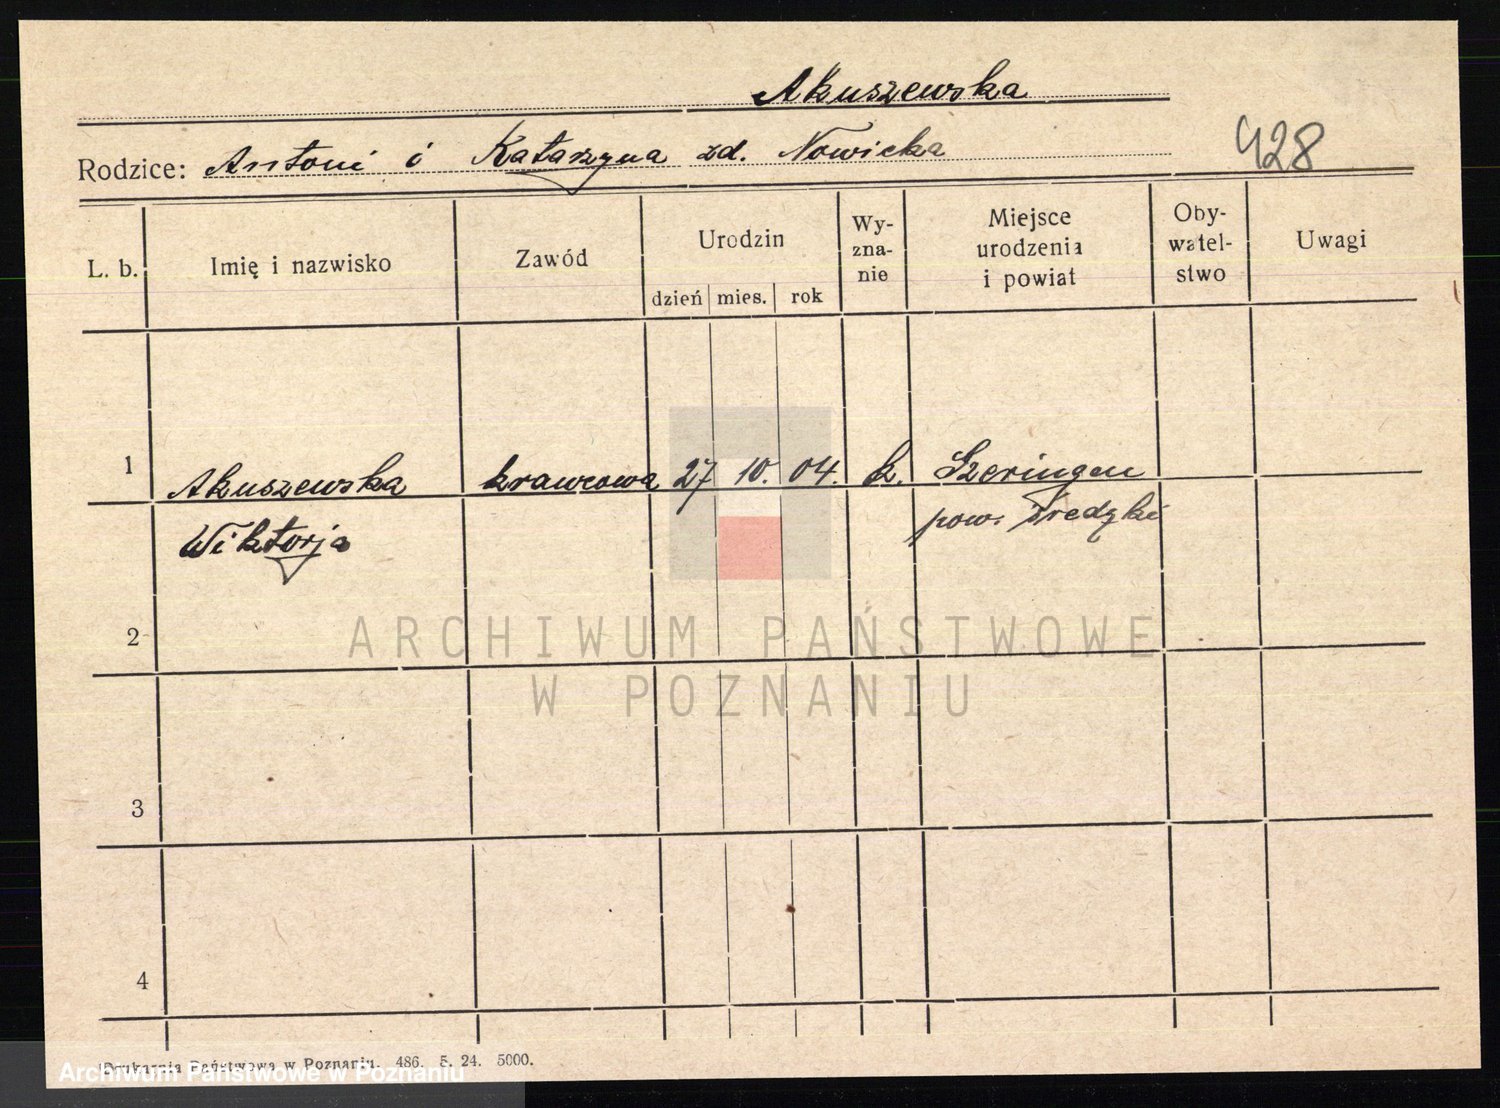 Akuszewska
Rodzice: Antoni i Katarzyna zd. Nowicka
428
L. b.
Imię i nazwisko
Zawód
Urodzin
dzień mies. rok
Wy-
zna-
nie
Miejsce
urodzenia
i powiat
Oby-
watel-
stwo
Uwagi
1
Akuszewska krawcowa 27 10. 04. k. Szeringen
Wiktorja pow. Średzki
2
3
4
ARCHIWUM PAŃSTWOWE
W POZNANIU
Drukarnia Państwowa w Poznaniu. 486. 5. 24. 5000.
Archiwum Państwowe w Poznaniu